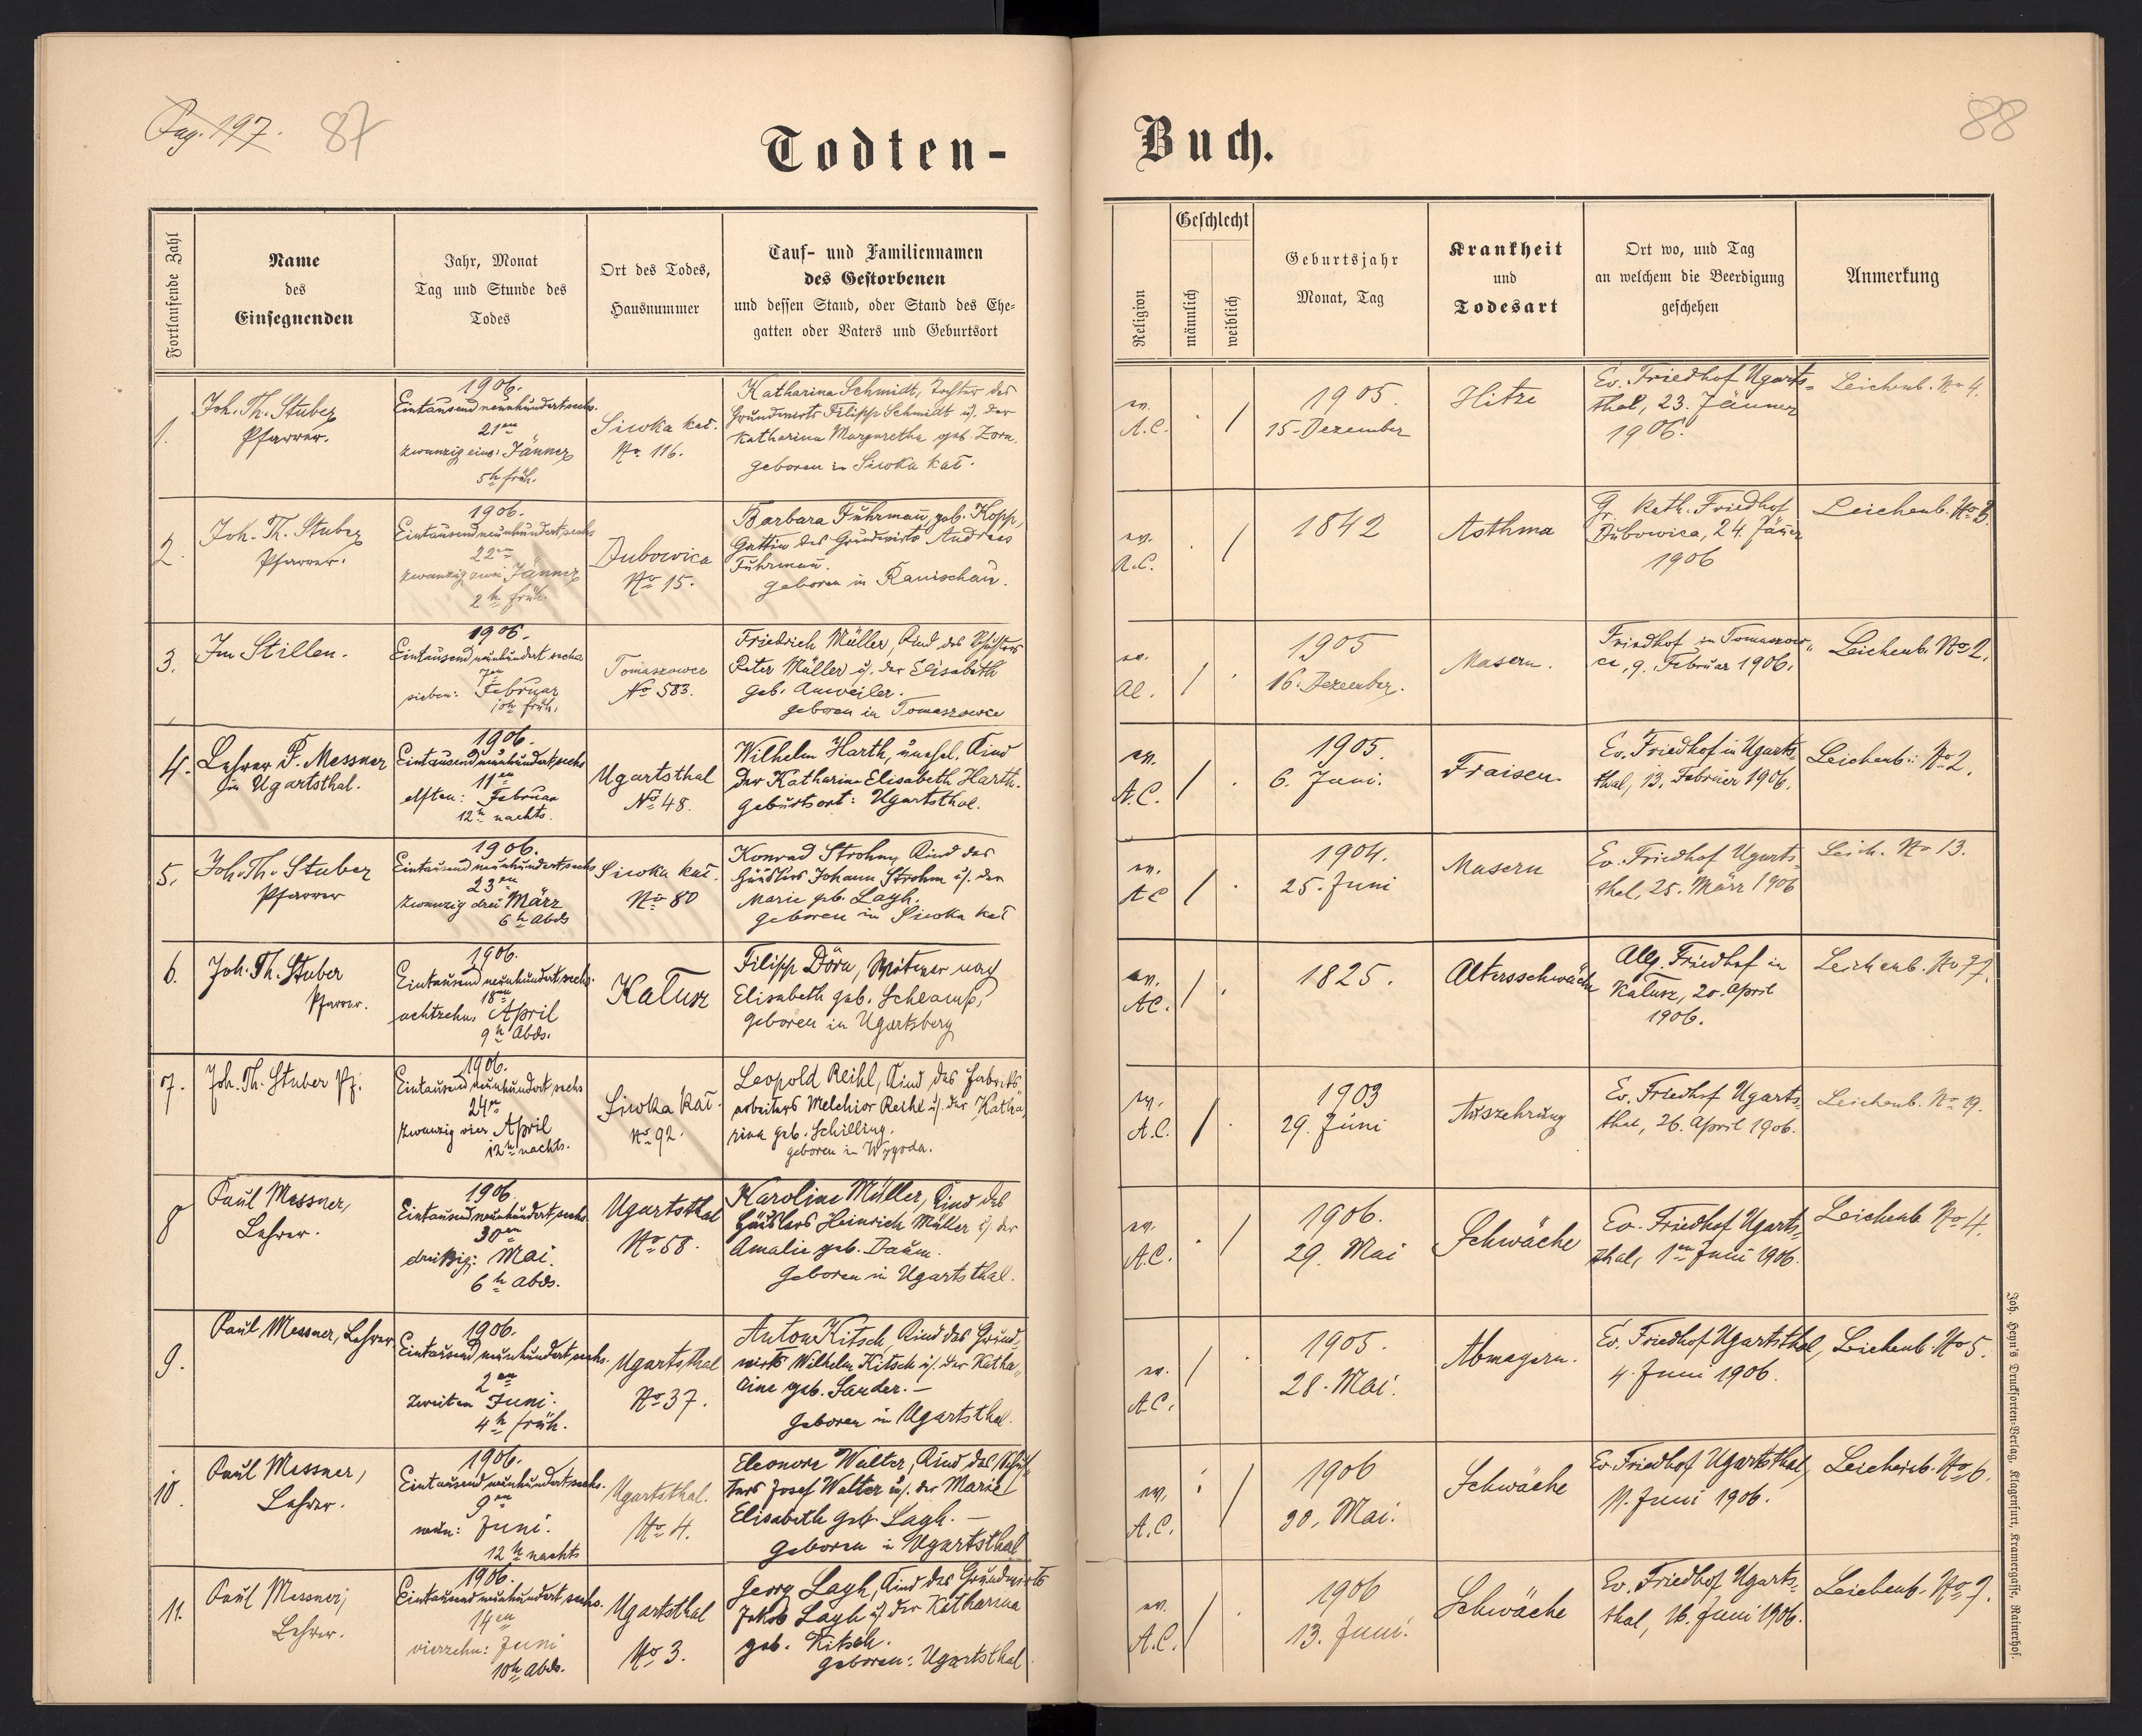 Pag. 197.
87
88
Todten-
Buch.
Fortlaufende Zahl
Name
des
Einsegnenden
Jahr, Monat
Tag und Stunde des
Todes
Ort des Todes,
Hausnummer
Tauf- und Familiennamen
des Gestorbenen
und dessen Stand, oder Stand des Ehe-
gatten oder Vaters und Geburtsort
Religion
Geschlecht
männlich
weiblich
Geburtsjahr
Monat, Tag
Krankheit
und
Todesart
Ort wo, und Tag
an welchem die Beerdigung
geschehen
Anmerkung
1.
Joh. Th. Stuber
Pfarrer.
1906.
Eintausendneunhundertsechs.
21en
zwanzig eins: Jänner
5h früh.
Siwka kał.
No 116.
Katharina Schmidt, Tochter des
Grundwirts Filipp Schmidt u. der
Katharina Margaretha geb. Zorn.
geboren in Siwka kał.
ev.
A.C.
1905.
15. Dezember
Hitze
Ev. Friedhof Ugarts-
thal, 23. Jänner
1906.
Leichenb. No 4.
2.
Joh. Th. Stuber
Pfarrer.
1906.
Eintausendneunhundertsechs
22en
zwanzig zwei Jänner
2h früh.
Dubowica
No 15.
Barbara Fuhrmañ, geb. Kopp,
Gattin des Grundwirts Andreas
Fuhrmañ.
geboren in Ranischau.
ev.
A.C.
1842
Asthma
Gr. Kath. Friedhof
Dubowica, 24. Jäner
1906
Leichenb. No 3.
3.
Im Stillen.
1906.
Eintausend neunhundert sechs
7en
sieben: Februar
10h früh.
Tomaszowce
No 583.
Friedrich Müller, Kind des Schusters
Peter Müller u. der Elisabeth
geb. Anweiler.
geboren in Tomaszowce
ev.
AC.
1905
16. Dezember.
Masern.
Friedhof in Tomaszow-
ce, 9. Februar 1906.
Leichenb. No 2.
4.
Lehrer P. Messner
in Ugartsthal.
1906.
Eintausendneunhundertsechs
11en
elften: Februar
12h nachts.
Ugartsthal
No 48.
Wilhelm Harth, unehel. Kind
der Katharina Elisabeth Harth.
Geburtsort: Ugartsthal.
ev.
A.C.
1905.
6. Juni.
Fraisen
Ev. Friedhof in Ugarts-
thal, 13. Februar 1906.
Leichenb: No 2.
5.
Joh. Th. Stuber
Pfarrer
1906.
Eintausend neunhundertsechs
23en
zwanzig drei März
6h Abds
Siwka kał.
No 80
Konrad Strohm, Kind des
Häuslers Johann Strohm u. der
Marie geb. Lagh.
geboren in Siwka kał
ev.
AC
1904.
25. Juni
Masern
Ev. Friedhof Ugarts-
thal, 25. März 1906
Leich. No 13.
6.
Joh. Th. Stuber
Pfarrer.
1906.
Eintausend neunhundertsechs.
18en
achtzehn. April
9h Abds.
Kałusz
Filipp Dörn, Witwer nach
Elisabeth geb. Schlamp,
geboren in Ugartsberg
ev.
AC.
1825.
Altersschwäche
Allg. Friedhof in
Kałusz, 20. April
1906.
Leichenb. No 77.
7.
Joh. Th. Stuber Pf.
1906.
Eintausend neunhundert sechs
24en
zwanzig vier April
12h nachts.
Siwka kał.
No 92.
Leopold Reihl, Kind des Fabriks-
arbeiters Melchior Reihl u. der Katha-
rina geb. Schilling.
geboren in Wygoda.
ev.
A.C.
1903
29. Juni
Auszehrung
Ev. Friedhof Ugarts-
thal, 26. April 1906.
Leichenb. No 19.
8
Paul Messner,
Lehrer.
1906.
Eintausend neunhundert sechs.
30en
dreißig: Mai.
6h Abds.
Ugartsthal
No 58.
Karoline Müller, Kind des
Häuslers Heinrich Müller u. der
Amalie geb. Daum.
geboren in Ugartsthal.
ev.
A.C.
1906.
29. Mai
Schwäche
Ev. Friedhof Ugarts-
thal, 1en Juni 1906.
Leichenb. No 4.
9.
Paul Messner, Lehrer
1906.
Eintausend neunhundert sechs.
2en
zweiten Juni.
4h früh.
Ugartsthal
No 37.
Anton Kitsch, Kind des Grund-
wirts Wilhelm Kitsch u. der Katha-
rine geb. Sarder. –
geboren in Ugartsthal.
ev.
A.C.
1905.
28. Mai.
Abmagern.
Ev. Friedhof Ugartsthal,
4. Juni 1906.
Leichenb. No 5.
10.
Paul Messner,
Lehrer.
1906.
Eintausend neunhundertsechs.
9en
neun: Juni.
12h nachts
Ugartsthal.
No 4.
Eleonore Walter, Kind des Schus-
ters Josef Walter u. der Marie
Elisabeth geb. Lagh. –
geboren in Ugartsthal
ev.
A.C.
1906
30. Mai.
Schwäche
Ev. Friedhof Ugartsthal,
11. Juni 1906.
Leichenb. No 6.
11.
Paul Messner,
Lehrer.
1906.
Eintausend neunhundert sechs.
14en
vierzehn: Juni
10h Abds.
Ugartsthal
No 3.
Georg Lagh, Kind des Grundwirts
Jakob Lagh u. der Katharina
geb. Kitsch.
geboren: Ugartsthal
ev.
A.C.
1906
13. Juni.
Schwäche
Ev. Friedhof Ugarts-
thal, 16. Juni 1906.
Leichenb. No 7.
Joh. Heyn's Drucksorten-Verlag, Klagenfurt, Kramergasse, Rainerhof.